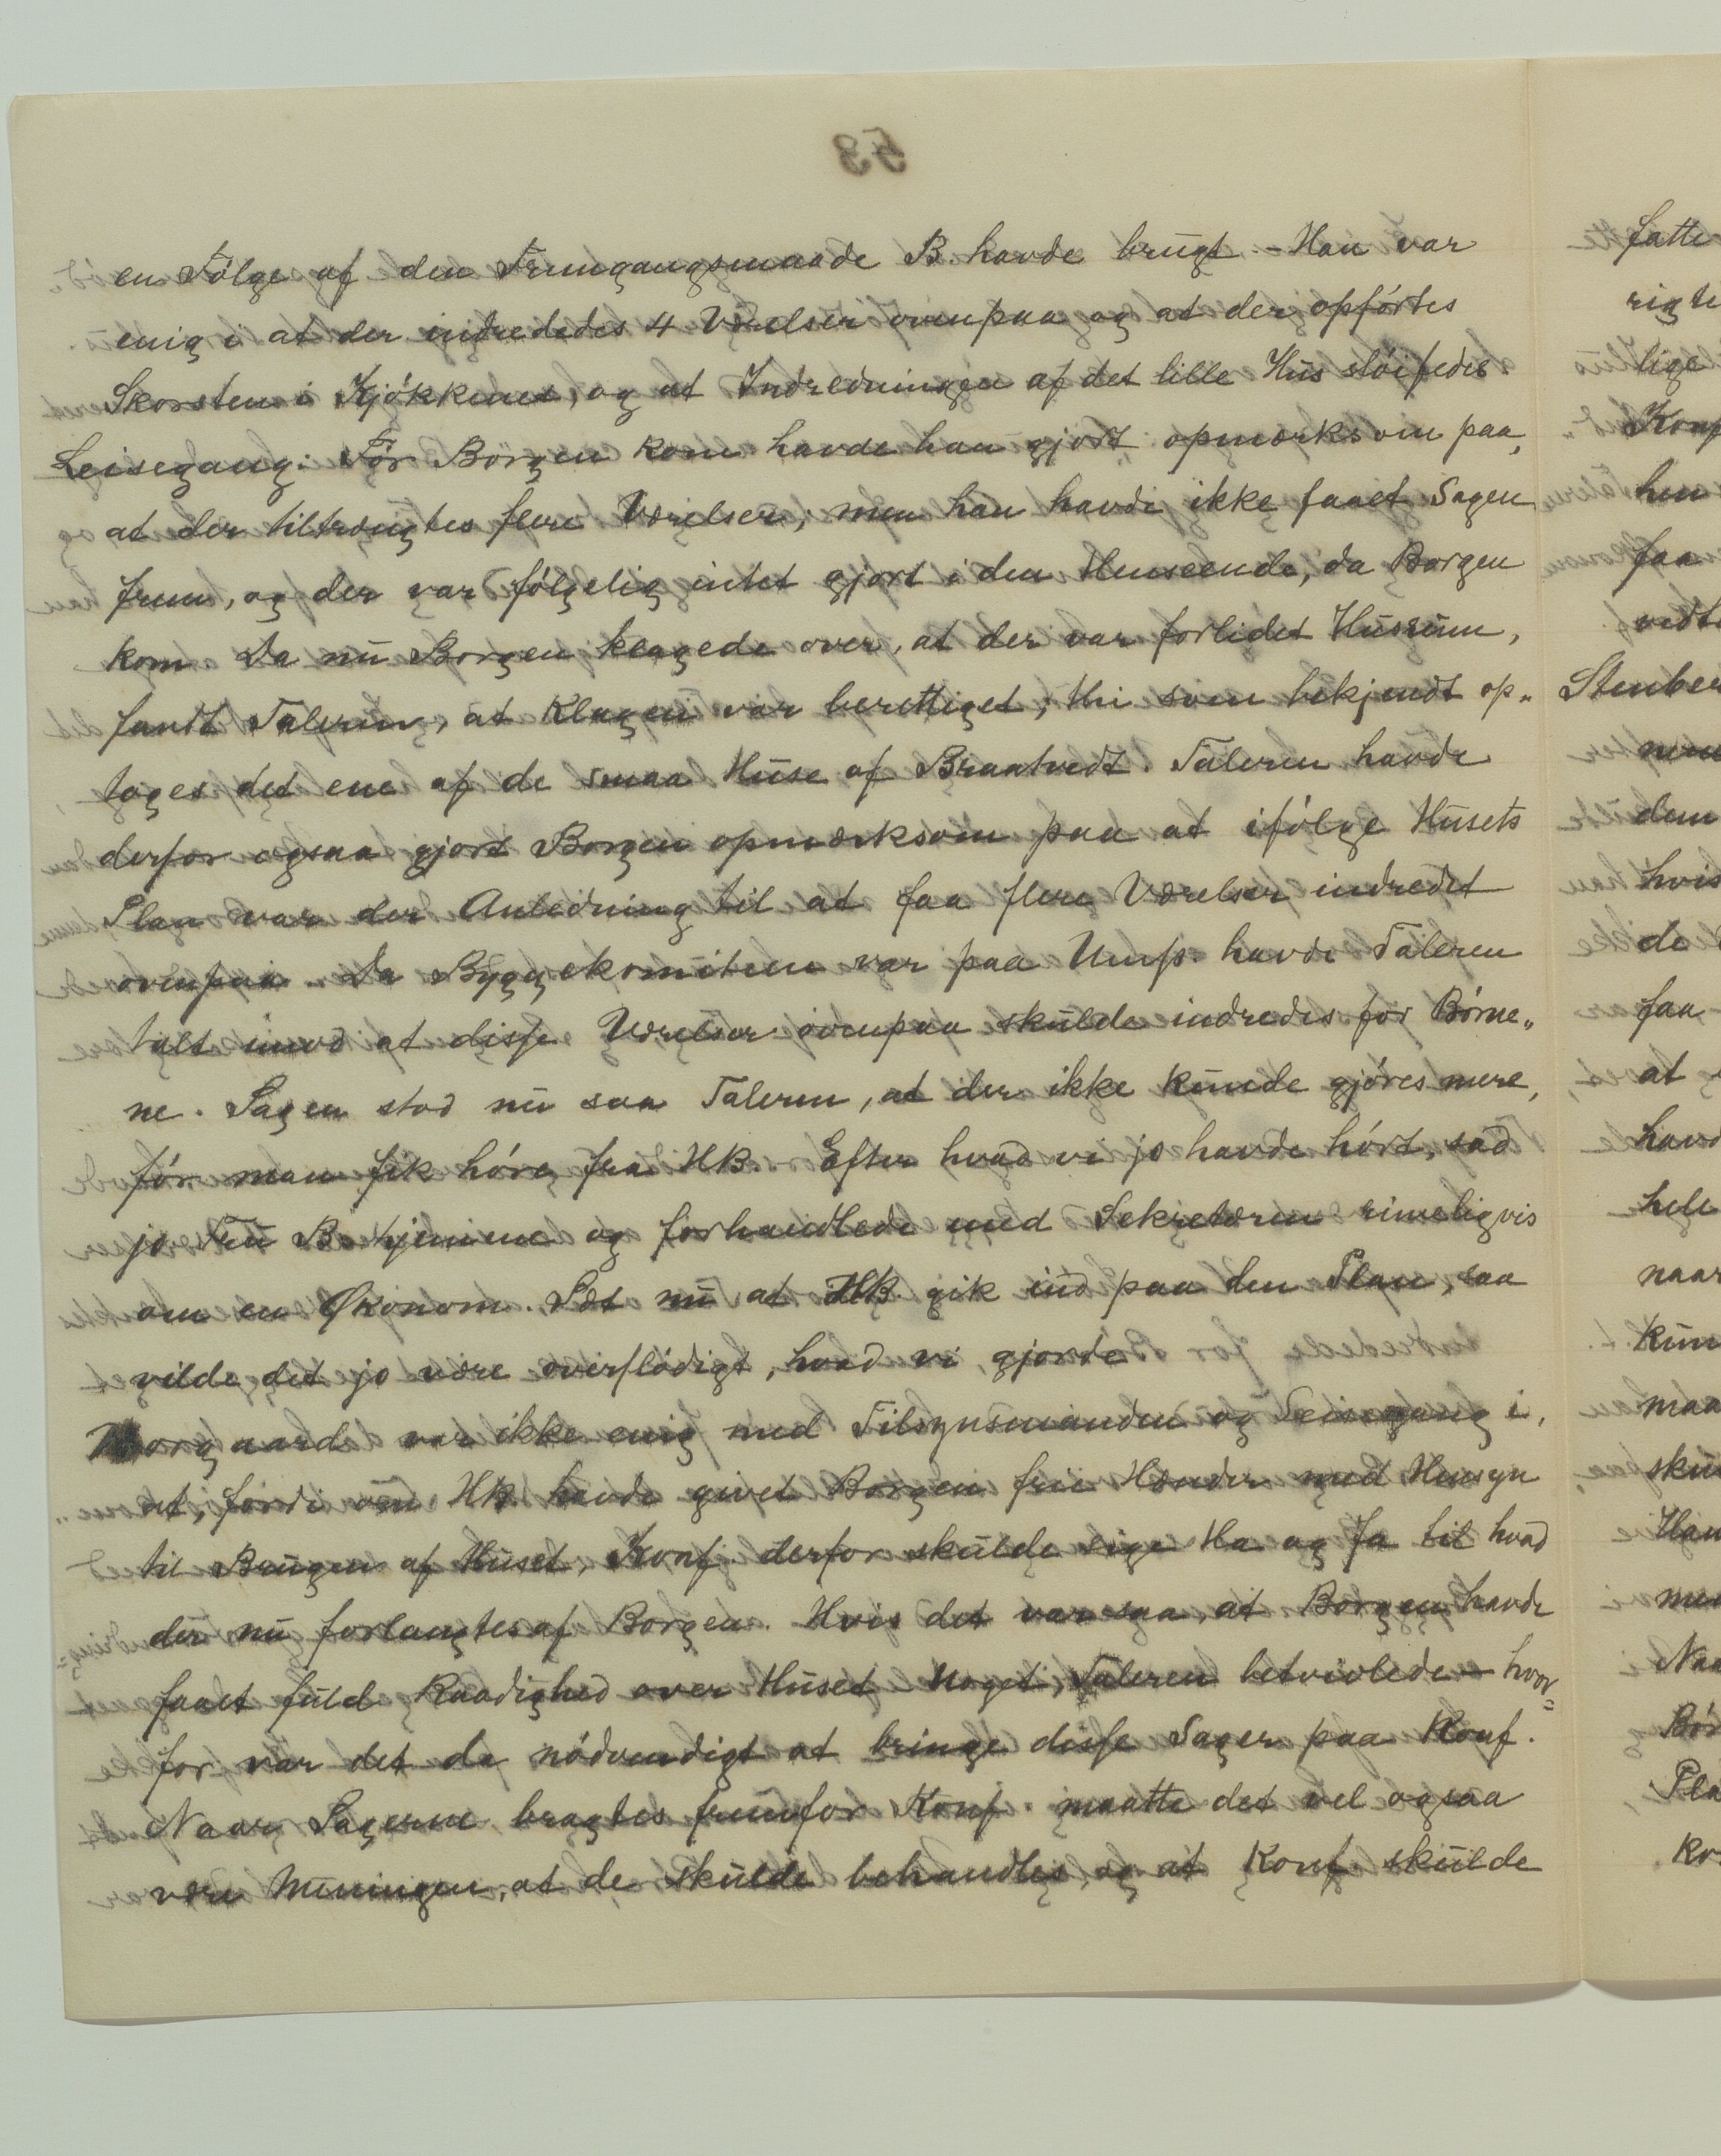 en Fölge af den Fremgangsmaade B. havde brugt. - Han var
enig i at der indrededes 4 Værelser ovenpaa og at der opførtes
Skorsten i Kjøkkenet, og at Indredningen af det lille Hus sløifedes
Leisegang: Før Borgen kom havde han gjort opmærksom paa,
at der tiltrængtes flere Værelser, men han havde ikke faaet Sagen
frem, og der var følgelig intet gjort i den Henseende, da Borgen
kom. Da nu Borgen klagede over, at der var forlidet Husrum,
fandt Taleren, at Klagen var berettiget; thi som bekjendt op„
toges det ene af de smaa Huse af Braatvedt. Taleren havde
derfor ogsaa gjort Borgen opmærksom paa at ifølge Husets
Plan var der Anledning til at faa flere Værelser indredet
ovenpaa. Da Byggekomiteen var paa Ump. havde Taleren
talt imod at disse Værelser ovenpaa skulde indredes for Børne„
ne. Sagen stod nu saa Taleren, at der ikke kunde gjøres mere,
før man fik høre fra HB. Efter hvad vi jo havde hørt, sad
jo Fru B. hjemme og forhandlede med Sekretæren rimeligvis
om en Økonom. Sæt nu at HB. gik ind paa den Plan, saa
vilde det jo være overflødigt, hvad vi gjorde
Norgaard var ikke enig med Tilsynsmanden og Leisegang i,
at, fordi om HB havde givet Borgen frie Hænder med Hensyn
til Brugen af Huset, Konf. derfor skulde sige Ha og Ja til hvad
der nu forlangtes af Borgen. Hvis det var saa, at Borgen havde
faaet fuld Raadighed over Huset Noget, Taleren betvivlede – hvor=
for var det da nødvendigt at bringe disse Sager paa Konf.
Naar Sagerne bragtes fremfor Konf. maatte det vel ogsaa
være Meningen, at de skulde behandles, og at Konf. skulde
fatte
rigte
lige
Konf
hen
faa
vedt
Stenber
nem
dem
hvis
de
faa
at
havd
hele
naar
kun
maa
sku
Han
med
Naa
Bör
Pla
ko